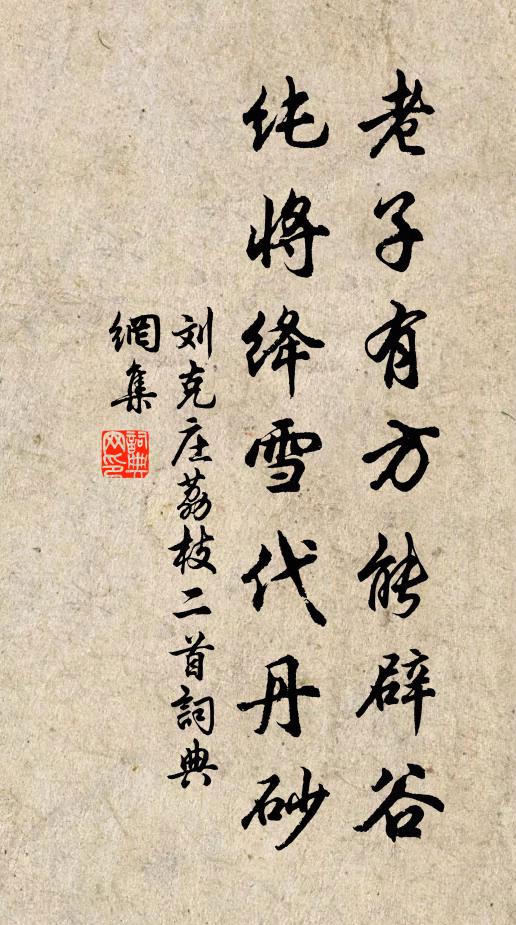 老子有方能辟谷
纯将绛雪代丹砂
刘克庄荔枝二首詞典
網集
詞典网印